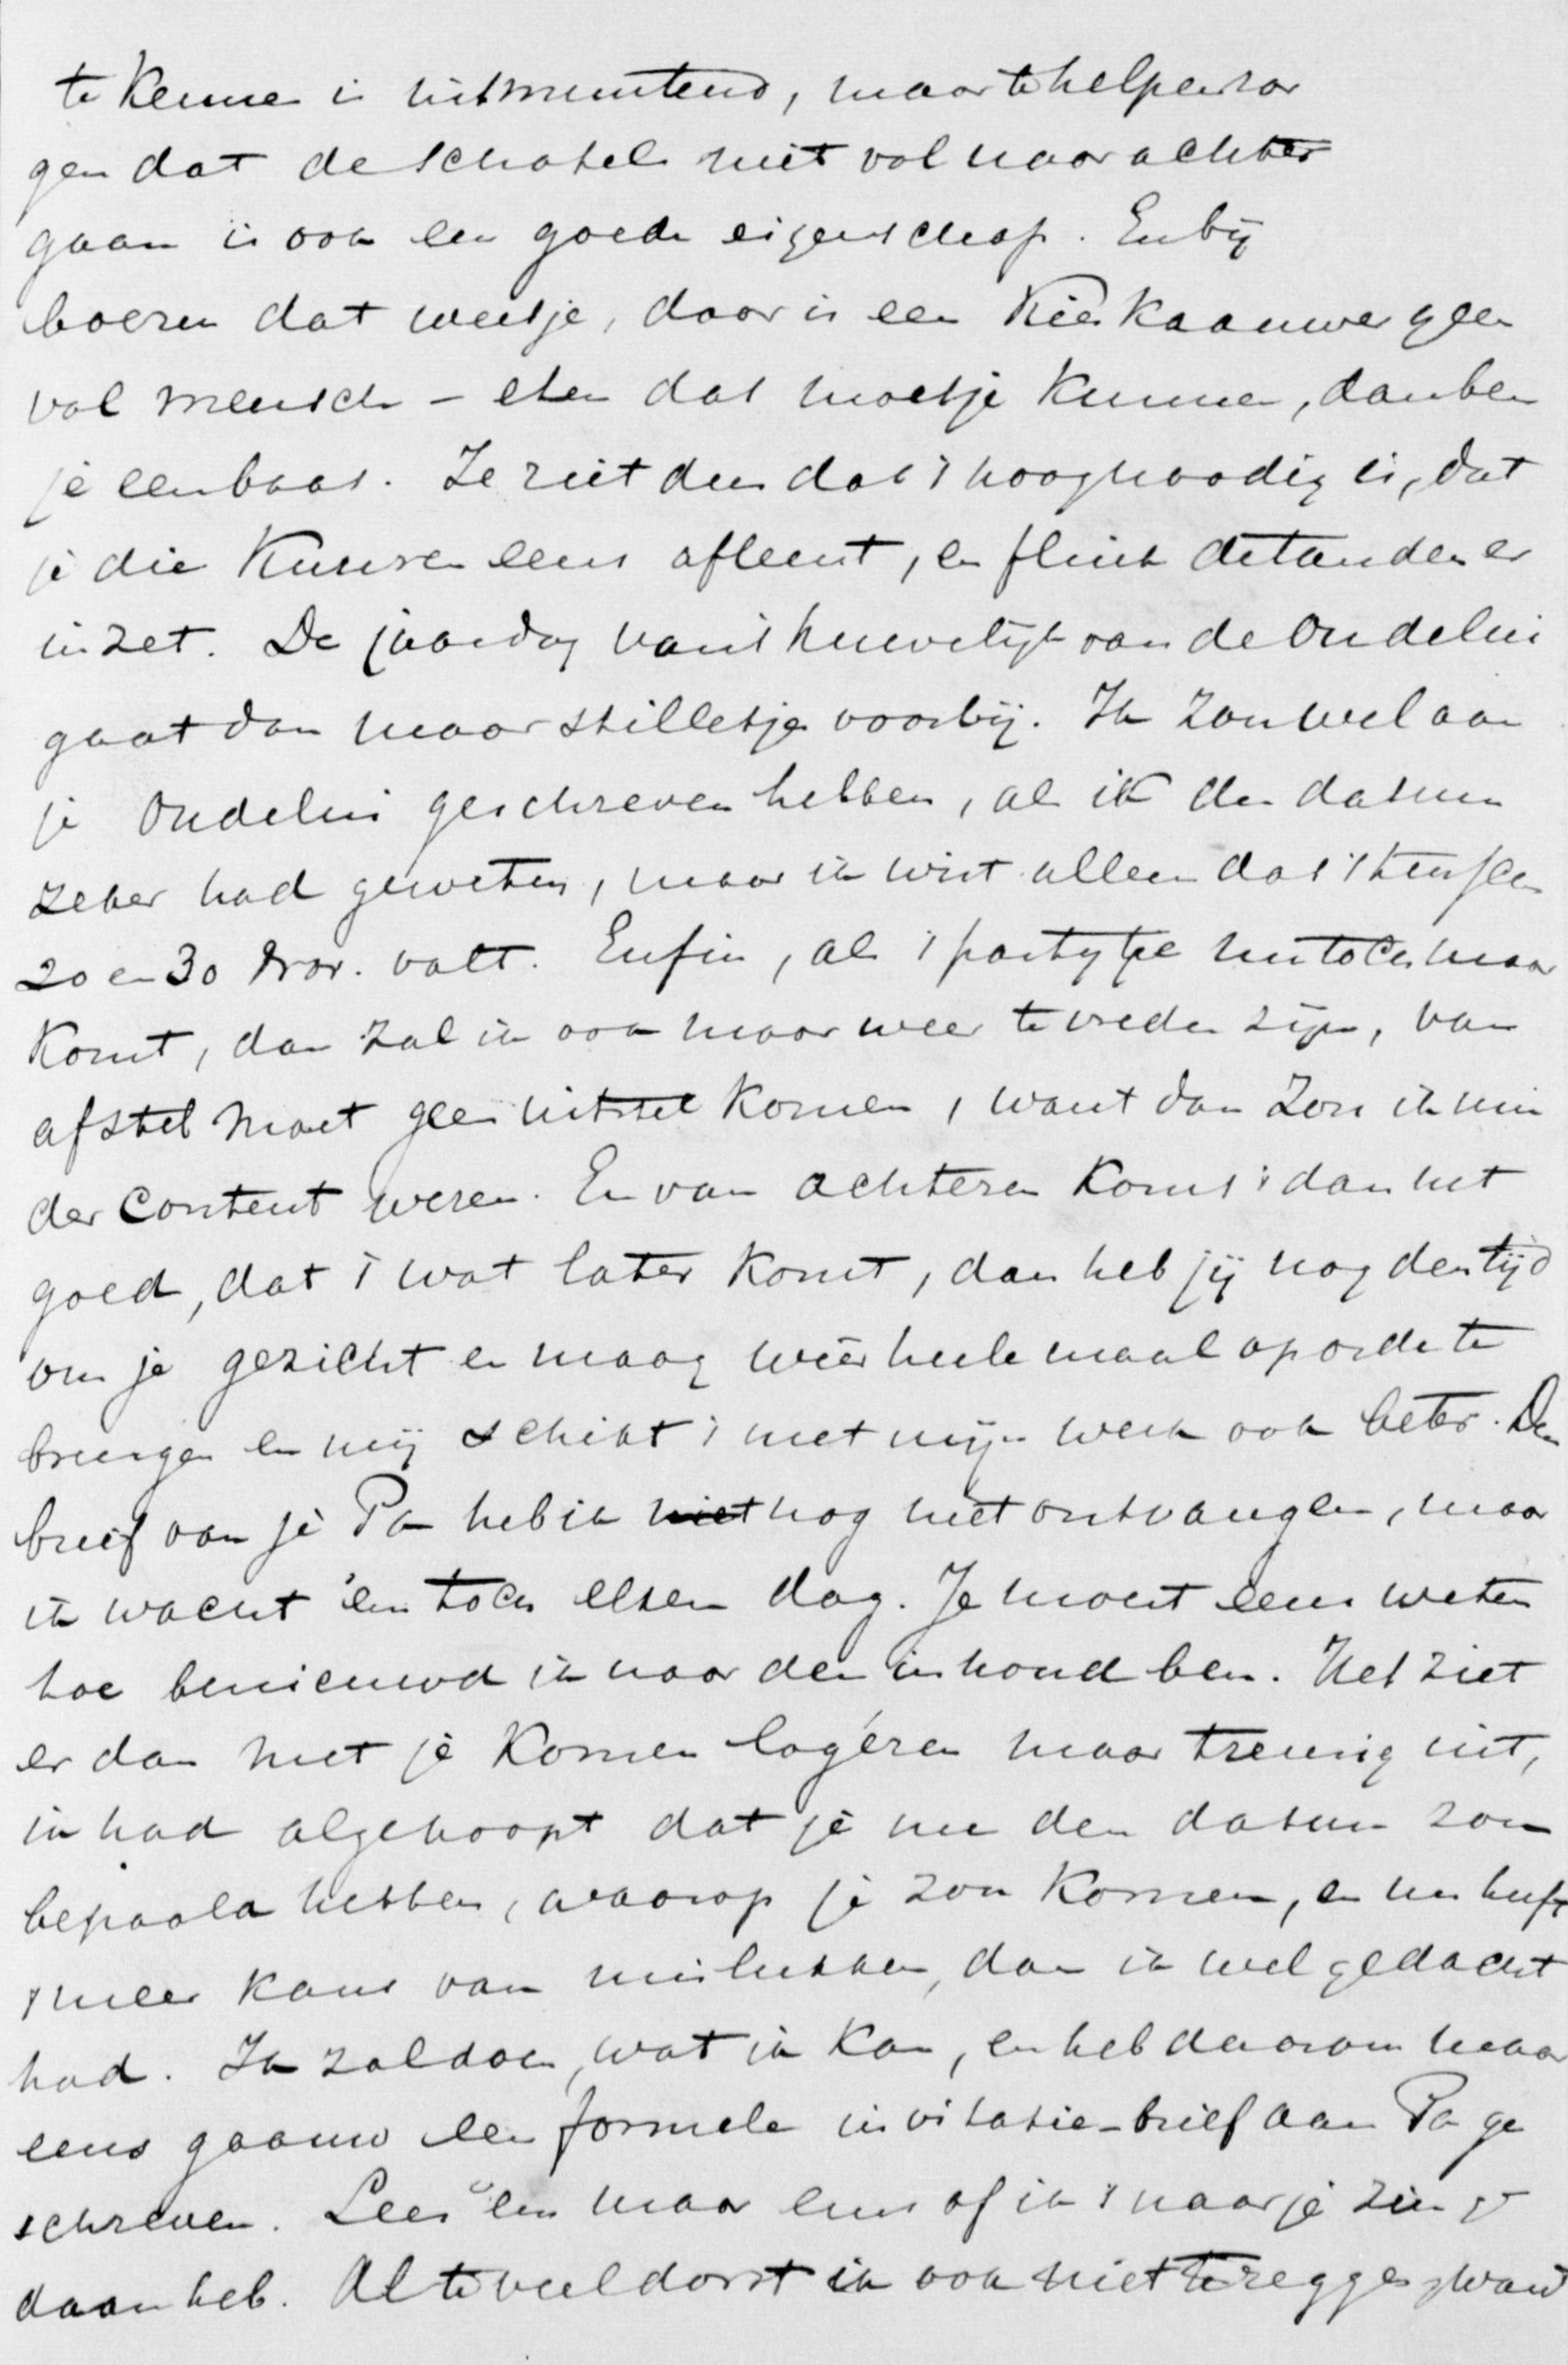 te kennen is uitmuntend, maar te helpen zor
gen dat de schotels niet vol naar achter
gaan is ook een goede eigenschap. En bij
boeren dat weet je, daar is een kieskaauwer geen
vol mensch – eten dat moet je kunnen, dan ben
je een baas. Je ziet dus dat 't hoognoodig is, dat
je die kuren eens afleert, en flink de tanden er
in zet. De jaardag van 't huwelijk van de oudelui
gaat dan maar stilletjes voorbij. Ik zou wel aan
je oudelui geschreven hebben, als ik den datum
zeker had geweten, maar ik wist alleen dat 't tusschen
20 en 30 Nov. valt. Enfin, als 't partytje nu toch maar
komt, dan zal ik ook maar weer tevreden zijn, van
afstel moet geen uitstel komen, want dan zou ik min
der content wezen. En van achteren komt 't dan net
goed, dat 't wat later komt, dan heb jij nog den tijd
om je gezicht en maag weer heelemaal op orde te
brengen en mij schikt 't met mijn werk ook beter. Den
brief van je Pa heb ik niet nog niet ontvangen, maar
ik wacht 'em toch elken dag. Je moest eens weten
hoe benieuwd ik naar den inhoud ben. Het ziet
er dan met je komen logéren maar treurig uit,
ik had al gehoopt dat je nu den datum zou
bepaald hebben, waarop je zou komen, en nu heeft
't meer kans van mislukken, dan ik wel gedacht
had. Ik zal doen, wat ik kan, en heb daarom maar
eens gaauw een formele invitatie-brief aan Pa ge
schreven. Lees 'em maar eens of ik 't naar je zin ge
daan heb. Al te veel dorst ik ook niet te zeggen, want